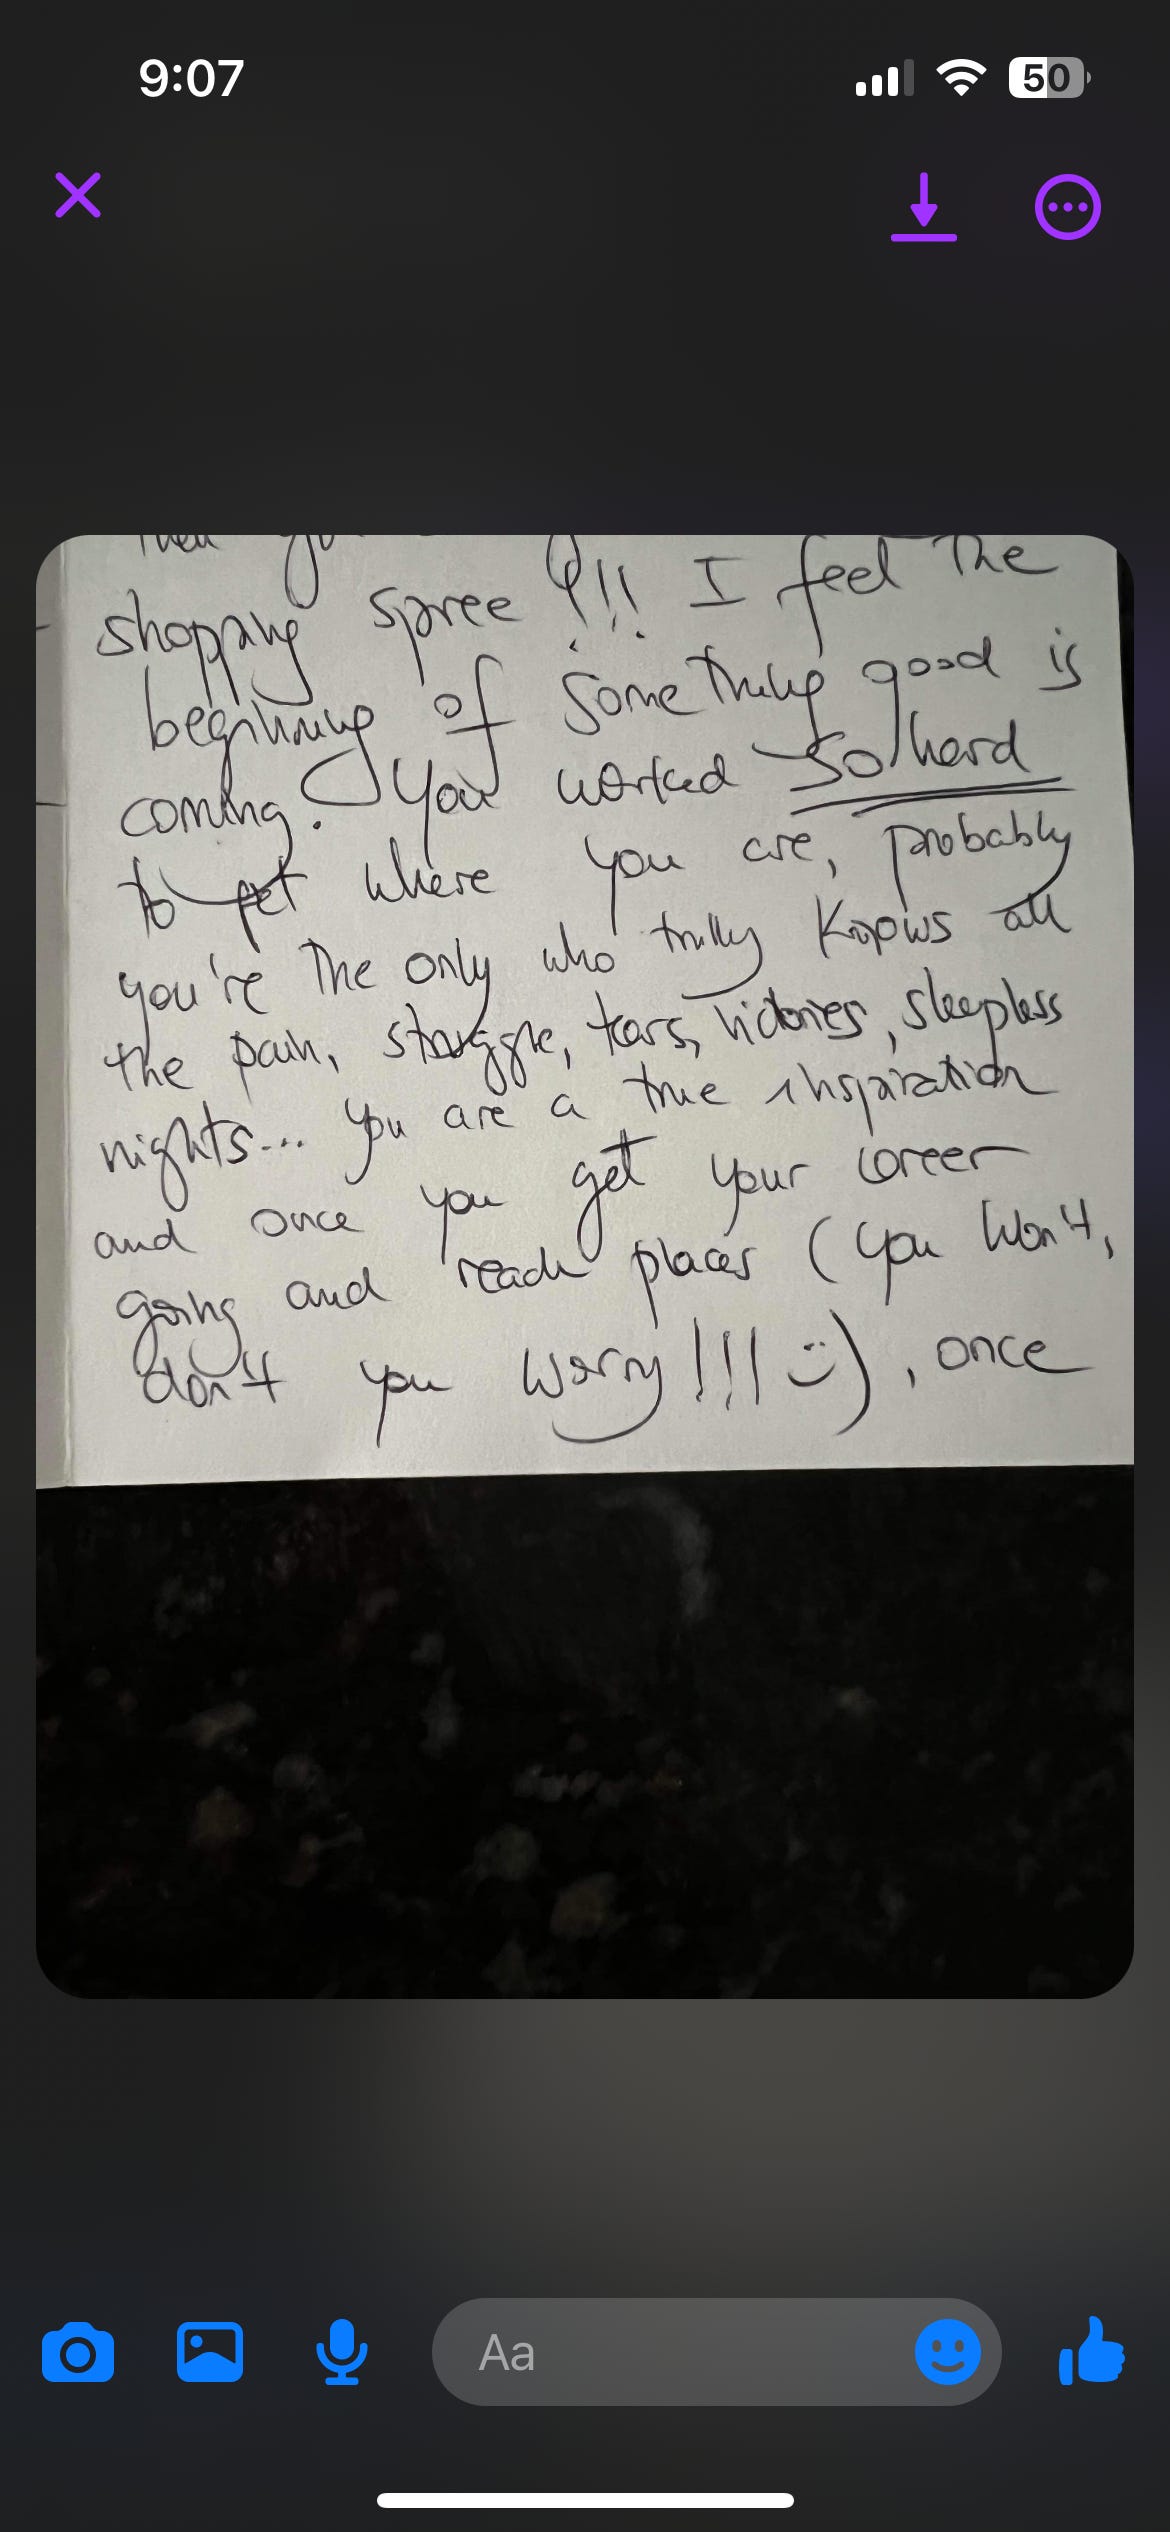 9:07
50
shopping spree !!! I feel the
beginning of something good is
coming. You worked so hard
to get where you are, probably
you're the only who trully knows all
the pain, struggle, tears, victories, sleepless
nights... you are a true inspiration
and once you get your career
going and reach places (you won't,
don't you worry!!! :) ), once
Aa